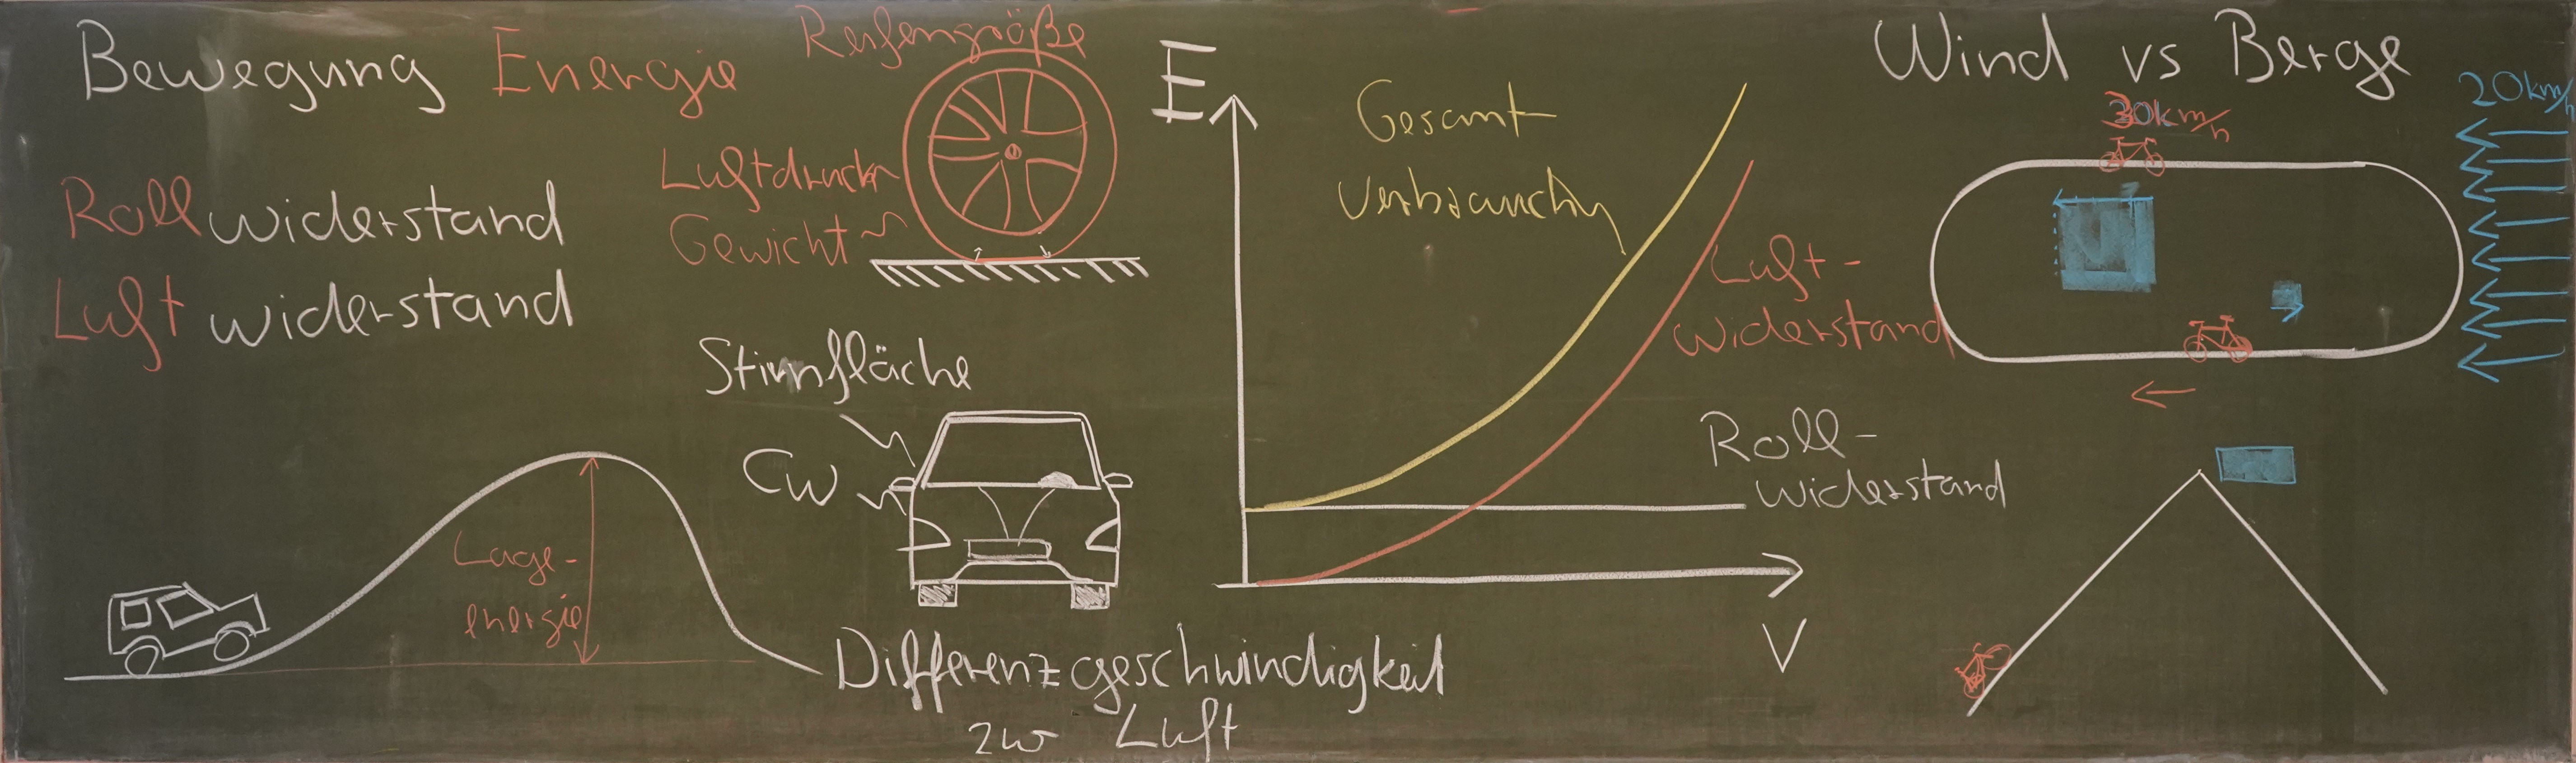 Bewegung Energie
Rollwiderstand
Luftwiderstand
Lage-
energie
Reifengröße
Luftdruck
Gewicht
Stirnfläche
CW
Differenzgeschwindigkeit
zur Luft
E
Gesamt
verbrauch
Luft-
widerstand
Roll-
widerstand
V
Wind vs Berge
30km/h
20km/h